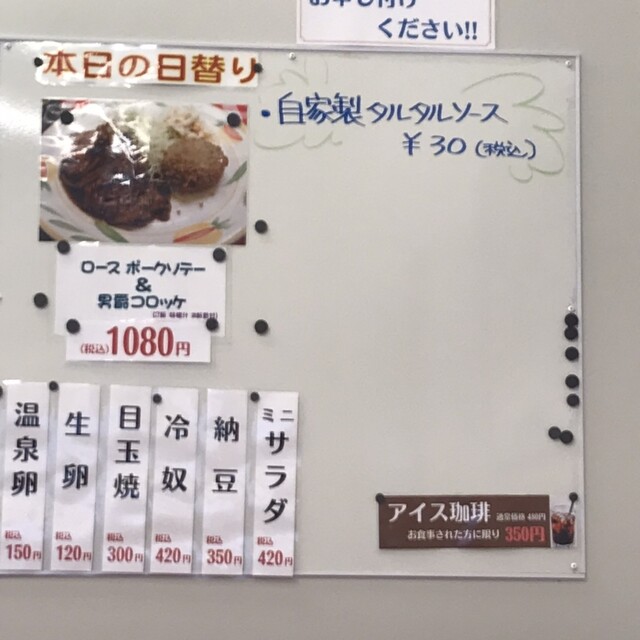 お申し付け
ください!!
本日の日替り
・自家製タルタルソース
¥30(税込)
ロースポークソテー
&
男爵コロッケ
(税込)1080円
温泉卵
税込
150円
生卵
税込
120円
目玉焼
税込
300円
冷奴
税込
420円
納豆
税込
350円
ミニサラダ
税込
420円
アイス珈琲 通常価格 480円
お食事された方に限り 350円